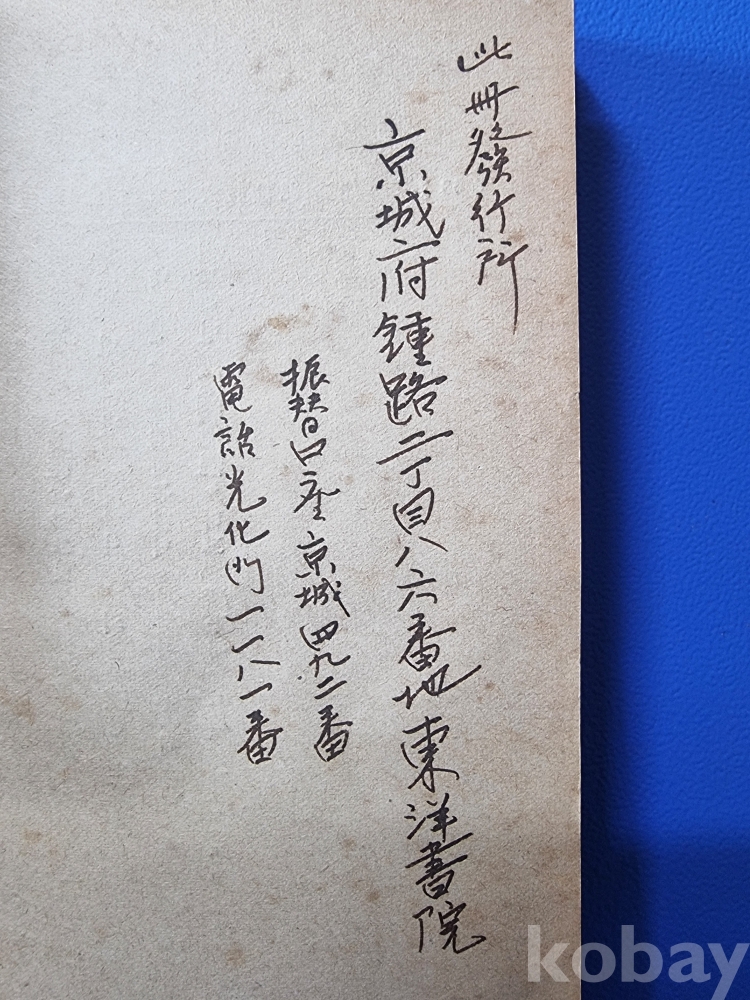 此冊發行所
京城府鍾路二丁目八六番地東洋書院
振替口座京城四九二番
電話光化門一一八一番
kobay